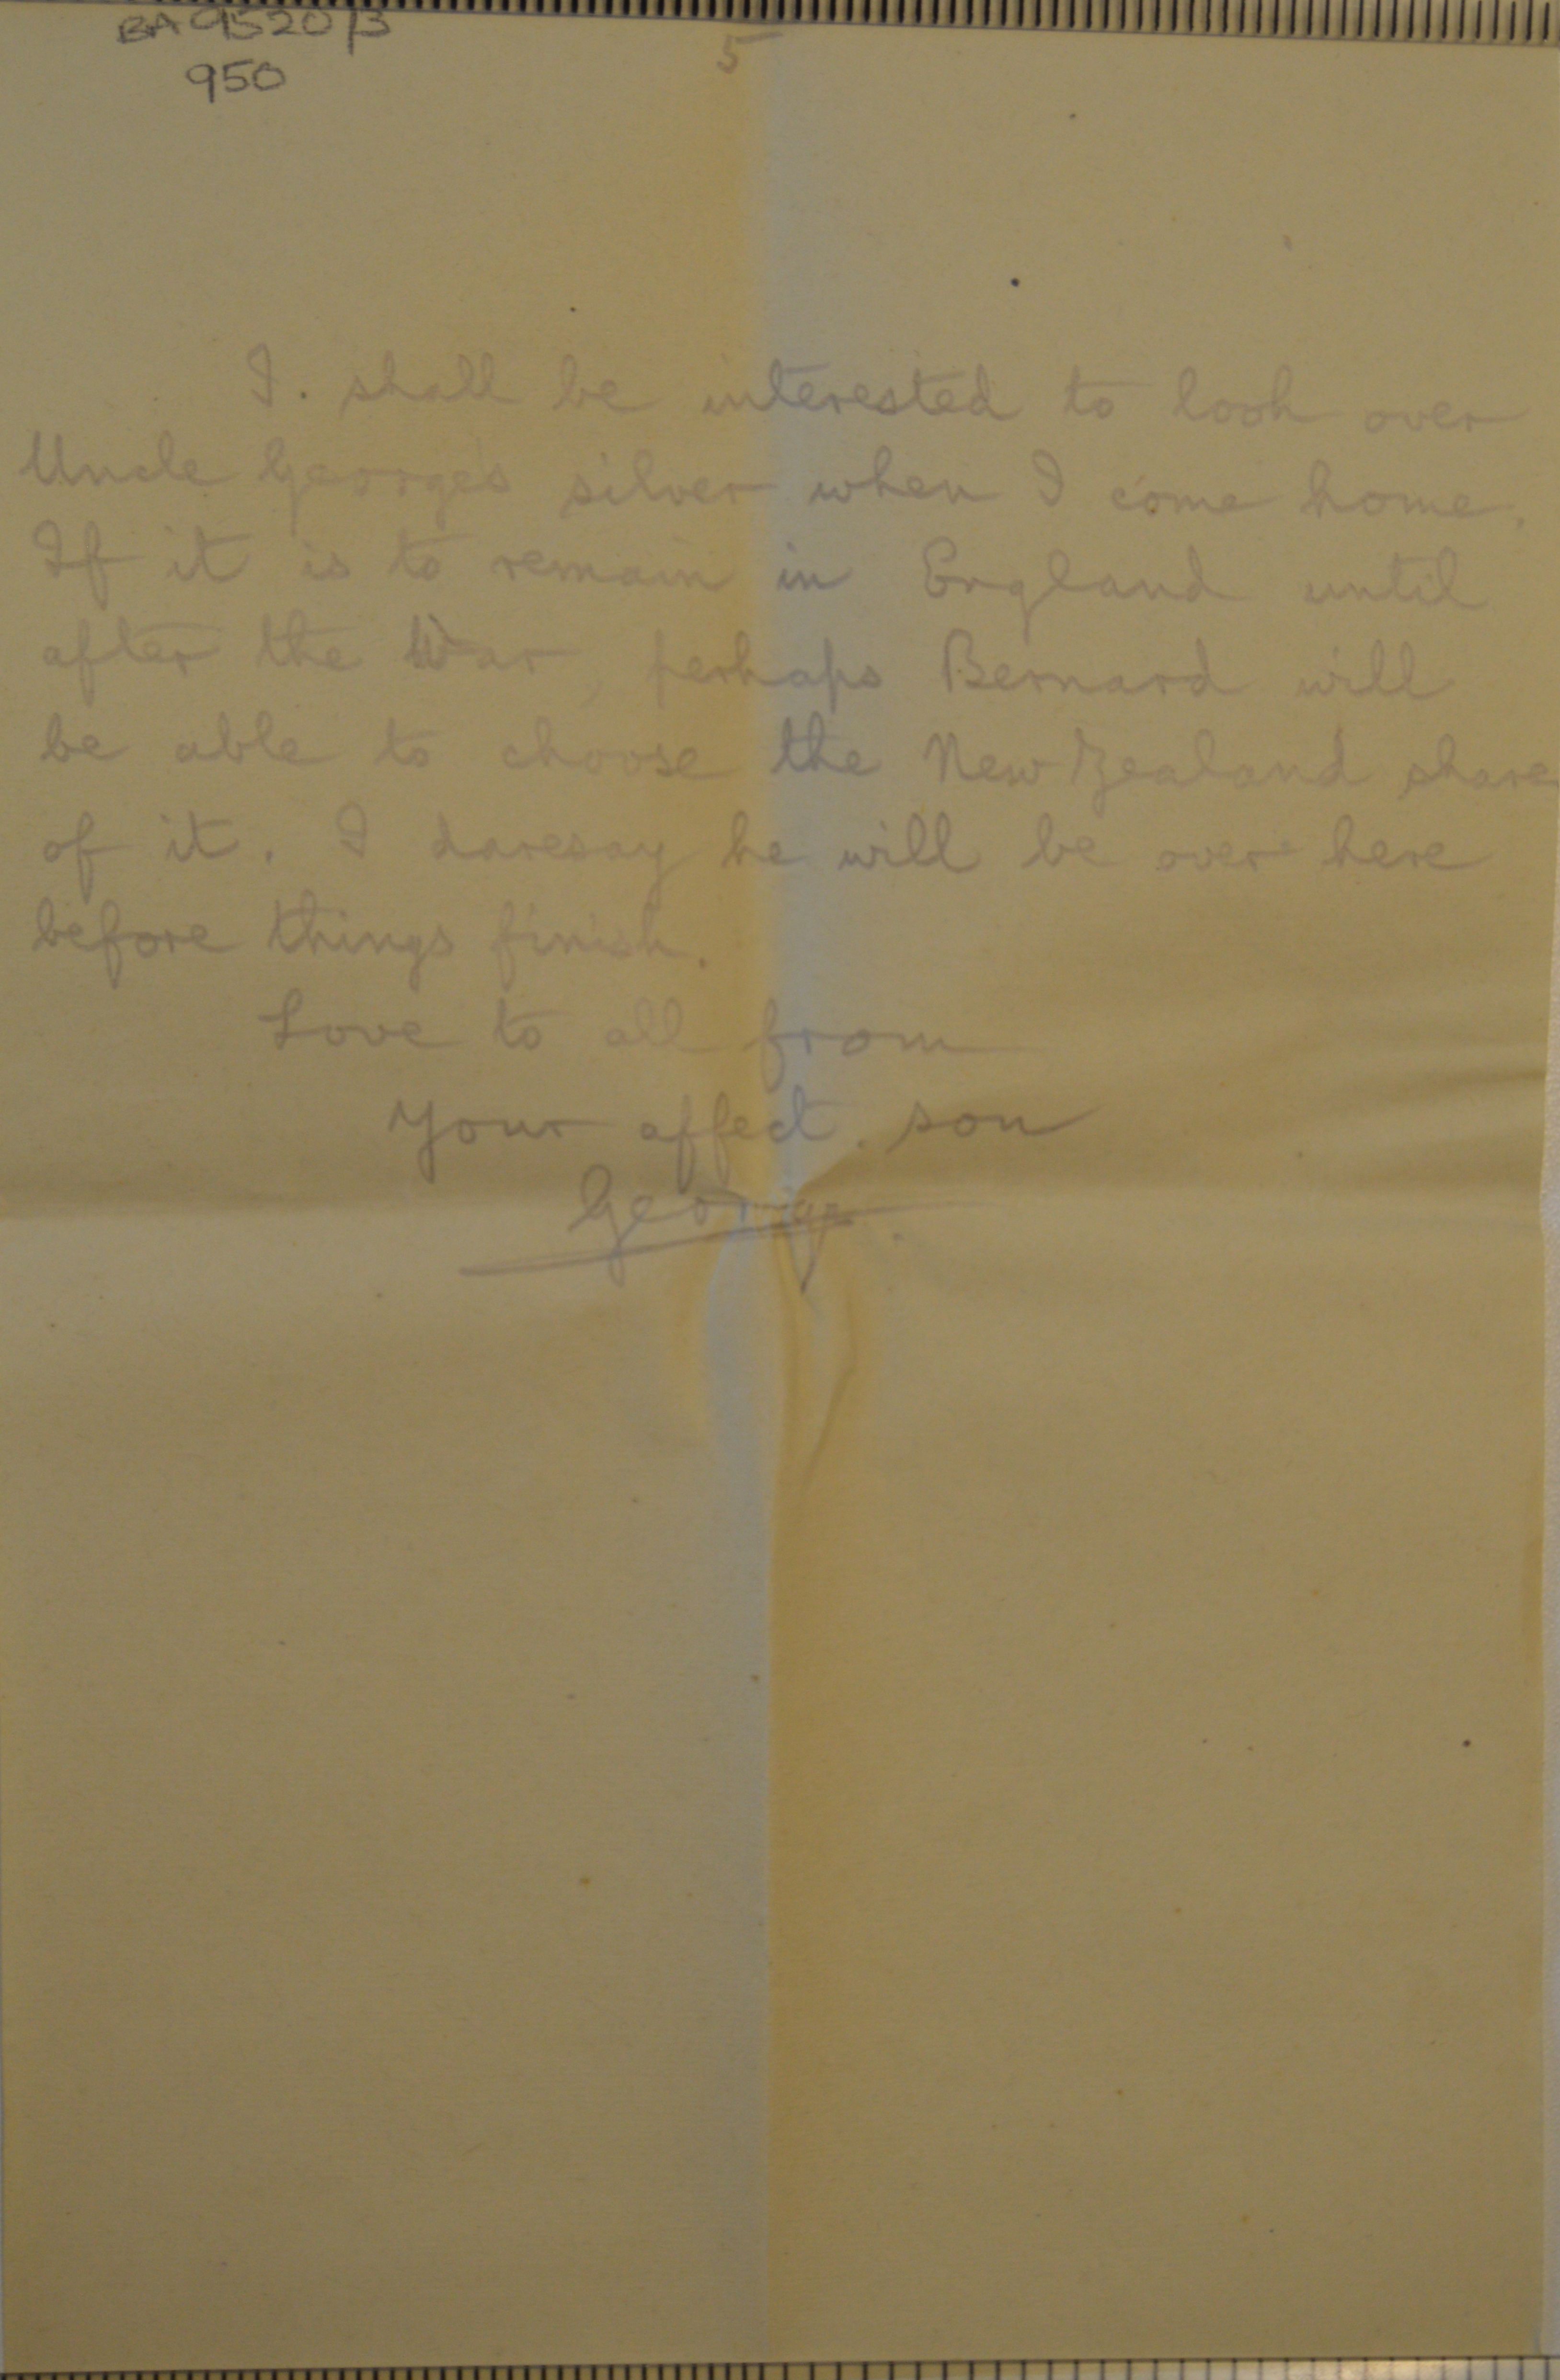 BA 9520/3
950
5
I. shall be interested to look over
Uncle George's silver when I come home.
If it is to remain in England until
after the War, perhaps Bernard will
be able to choose the New Zealand share
of it. I daresay he will be over here
before things finish.
Love to all from
Your affect. son
George.